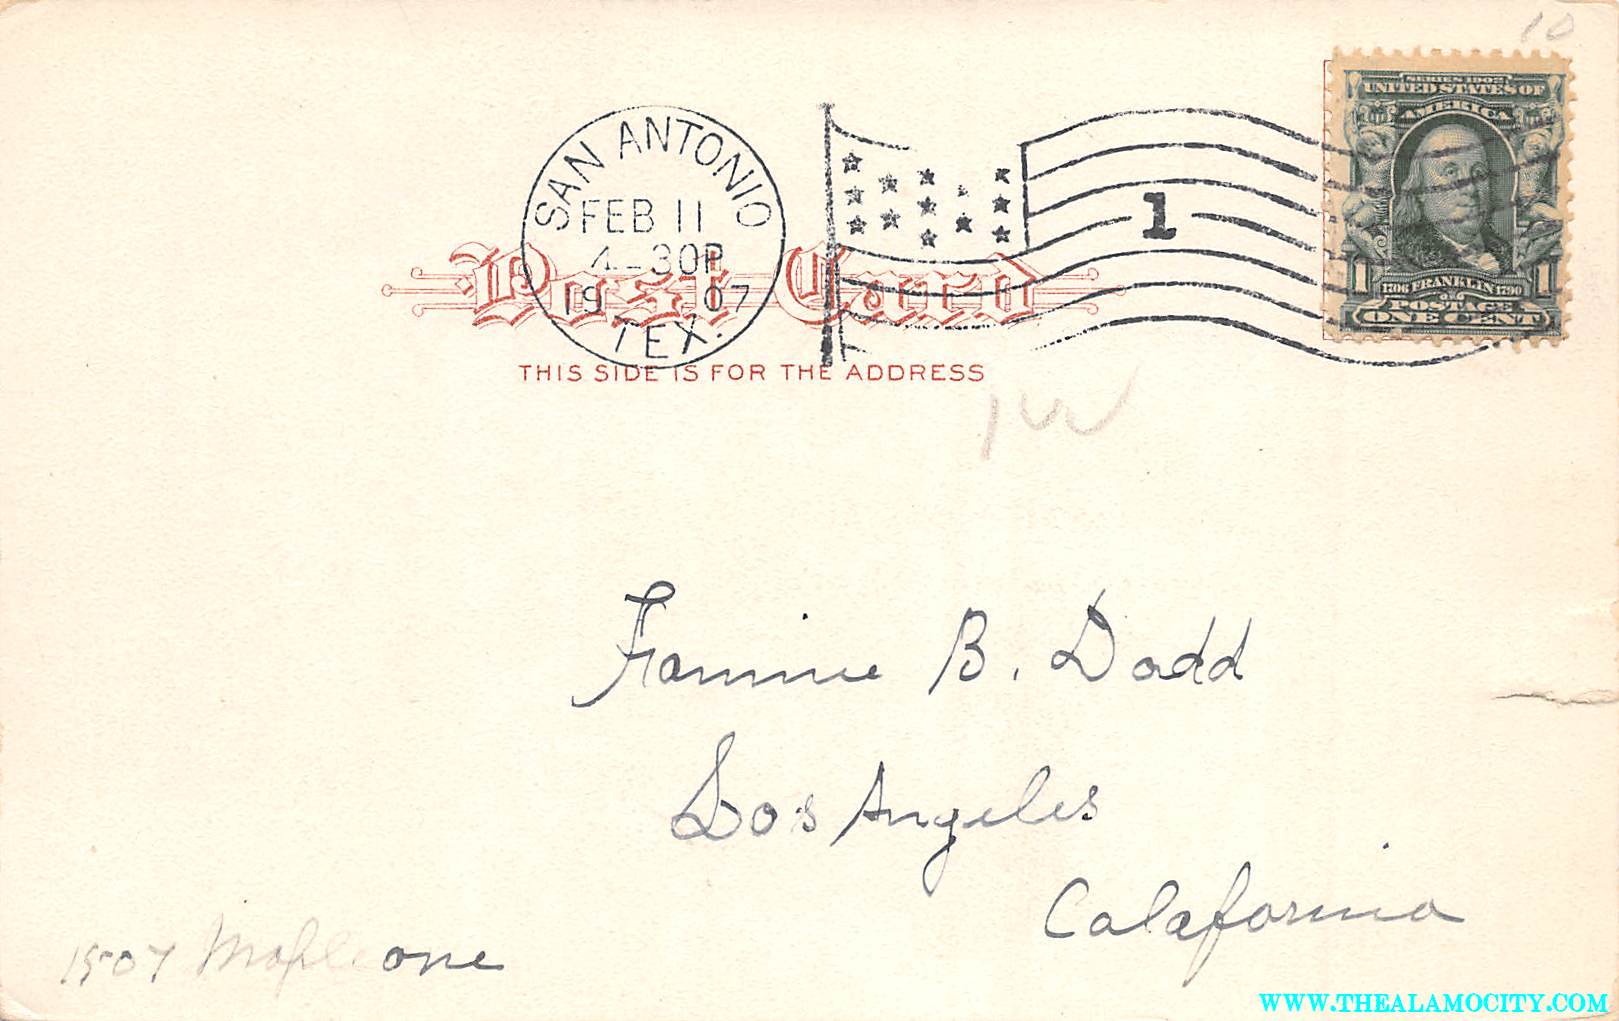 10
SERIES 1902
UNITED STATES OF
AMERICA
1 1706 FRANKLIN 1790 1
POSTAGE
ONE CENT
SAN ANTONIO
FEB 11
4-30P
1907
TEX.
1
Post Card
THIS SIDE IS FOR THE ADDRESS
Fannie B. Dodd
Los Angeles
Calafornia
1507 Maple one
WWW.THEALAMOCITY.COM